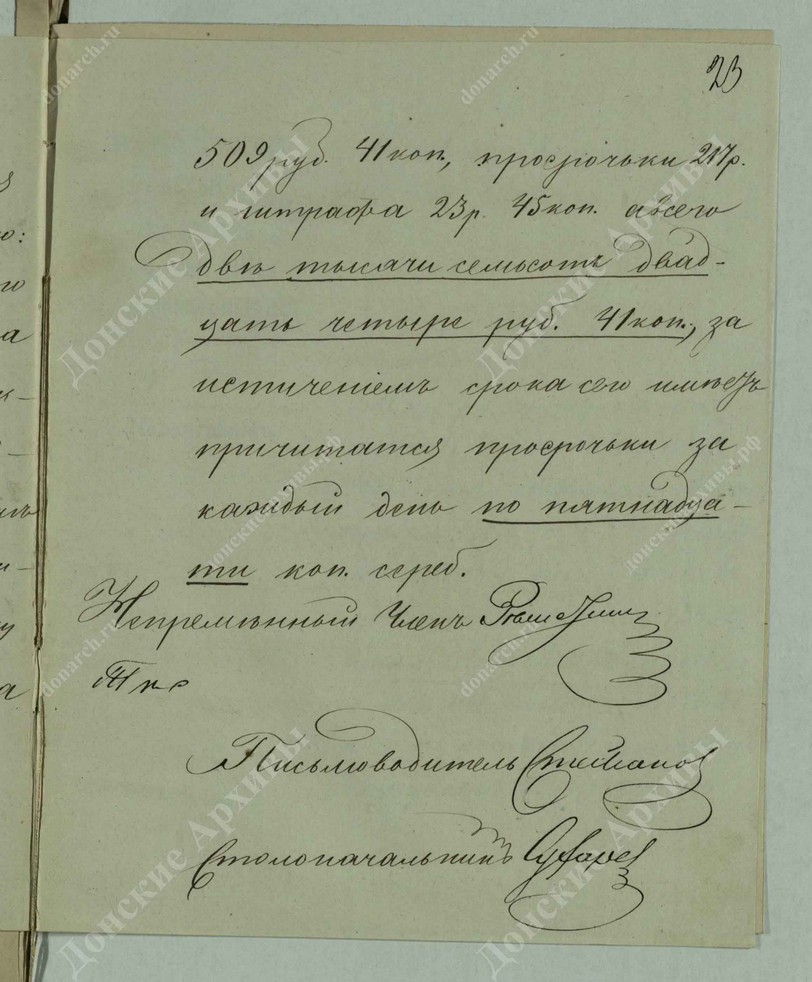 23
509 руб. 41 коп., просрочьки 217 р.
и штрафа 23 р. 45 коп. авсего
двѣ тысячи семьсотъ двад-
цать четыре руб. 41 коп., за
истичениемъ срока сего имѣетъ
причитатся просрочьки за
каждый день по пятнадца-
ти коп. сереб.
Непремѣнный Членъ
Письмоводитель Степанов
Столоначальникъ
Донские Архивы
donarch.ru
донскиеархивы.рф